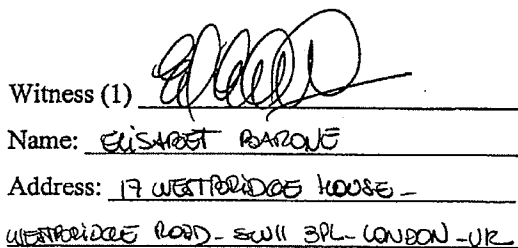 Witness (1)
Name: ELISABET BARONE
Address: 17 WESTBRIDGE HOUSE -
WESTBRIDGE ROAD - SW11 3PL - LONDON - UK